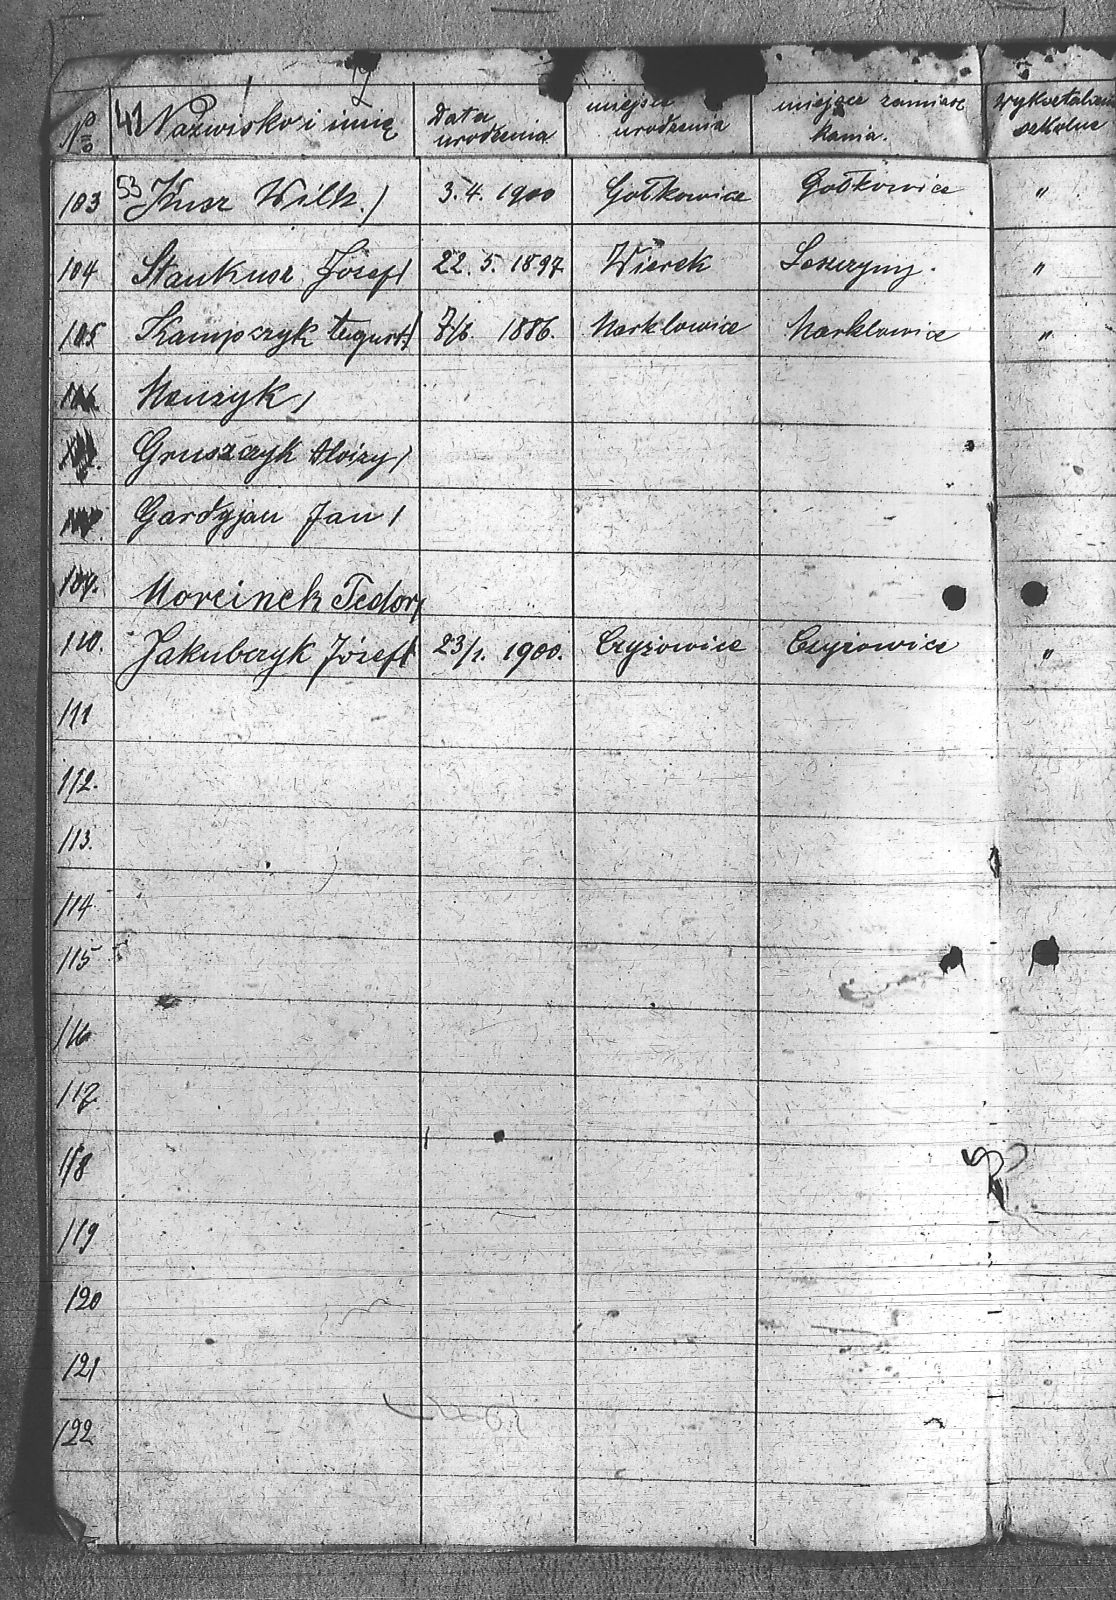 7
No 41 Nazwisko i imię Data urodzenia miejsce urodzenia miejsce zamieszkania. wykształcenie szkolne
103 53 Kusz Wilh. / 3.4.1900 Gołkowice Gołkowice "
104 Stankusz Józef / 22.5.1897 Wierek Leszczyny. "
105 Kampszyk / 1886. Marklowice Marklowice "
Menżyk /
Gruszczyk Aloizy /
Gardyjan Jan /
Morcinek Teodor /
110. Jakubczyk Józef / 23/1. 1900. Czyżowice Czyżowice "
111
112.
113.
114
115
116
117.
118
119
120
121
122